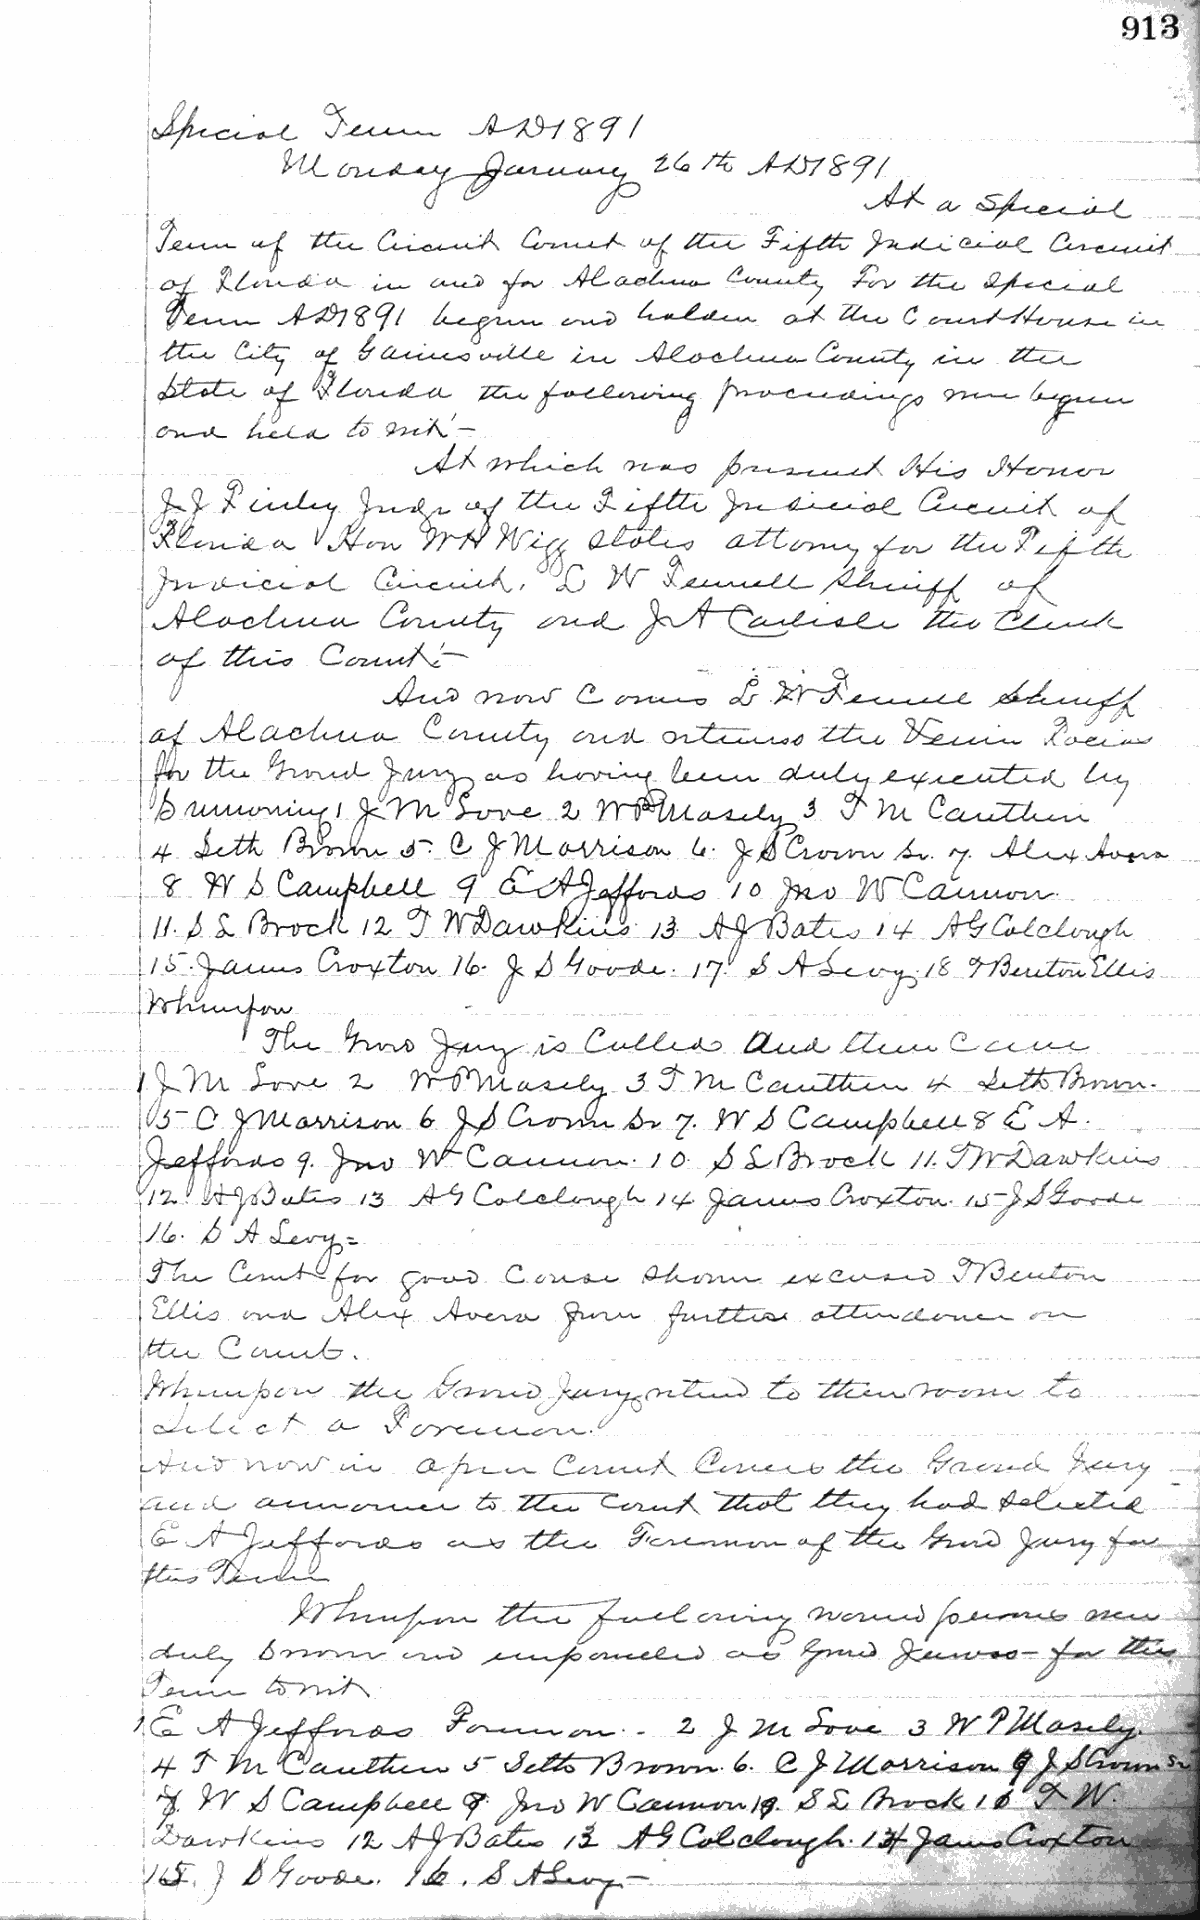 913
Special Term AD1891
Monday January 26th AD1891
At a Special
Term of the Circuit Court of the Fifth Judicial Circuit
of Florida in and for Alachua County For the Special
Term AD1891 begun and holden at the Court House in
the City of Gainesville in Alachua County in the
State of Florida the following proceedings were begun
and held to wit:—
At which was present His Honor
J J Finley Judge of the Fifth Judicial Circuit of
Florida Hon W H Wigg States attorney for the Fifth
Judicial Circuit. L W Fennell Sheriff of
Alachua County and J A Carlisle the Clerk
of this Court:—
And now Comes L W Fennell Sheriff
of Alachua County and returns the Venire Facias
for the Grand Jury as having been duly executed by
Summoning 1 J M Love 2 W P Masely 3 T M Cauthen
4 Seth Brown 5. C J Morrison 6. J S Crown Sr. 7. Alex Avera
8 W S Campbell 9 E A Jeffords 10 Jno W Cannon
11. S L Brock 12 T W Dawkins 13 A J Bates 14 A G Colclough
15. James Croxton 16. J S Goode. 17. S A Levy. 18 T Benton Ellis
Whereupon
The Grand Jury is Called And then Came
1 J M Love 2 W P Masely 3 T M Cauthen 4 Seth Brown.
5 C J Morrison 6 J S Crown Sr 7. W S Campbell 8 E A.
Jeffords 9. Jno W Cannon. 10 S L Brock 11. T W Dawkins
12. A J Bates 13 A G Colclough 14 James Croxton. 15 J S Goode
16. S A Levy=
The Court for good Cause shown excused T Benton
Ellis and Alex Avera from further attendance on
the Court.
Whereupon the Grand Jury retired to their room to
Select a Foreman.
And now in open Court Comes the Grand Jury
and announce to the Court that they had selected
E A Jeffords as the Foreman of the Grand Jury for
this Term
Whereupon the following named persons were
duly sworn and impaneled as Grand Jurors— for this
Term to wit
1 E A Jeffords Foreman.- 2 J M Love 3 W P Masely.
4 T M Cauthen 5 Seth Brown. 6. C J Morrison J S Crown Sr
W S Campbell Jno W Cannon S L Brock T W.
Dawkins 12 A J Bates 13 A G Colclough. 14 James Croxton
15. J S Goode. 16. S A Levy—